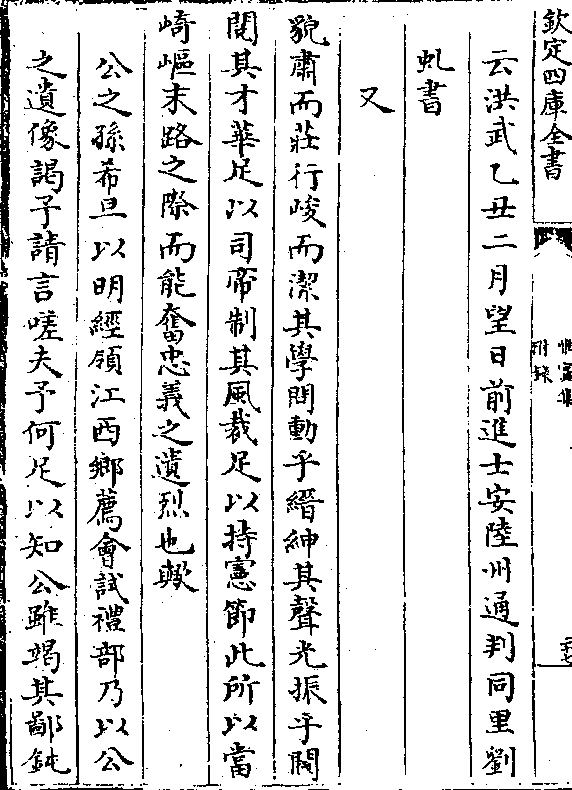 欽定四庫全書
附錄
云洪武乙丑二月望日前進士安陸州通判同里劉
虬書
又
貌肅而莊行峻而潔其學問動乎縉紳其聲光振乎閥
閱其才華足以司帝制其風裁足以持憲節此所以當
崎嶇末路之際而能奮忠義之遺烈也歟
公之孫希旦以明經領江西鄉薦會試禮部乃以公
之遺像謁予請言嗟夫予何足以知公雖竭其鄙鈍